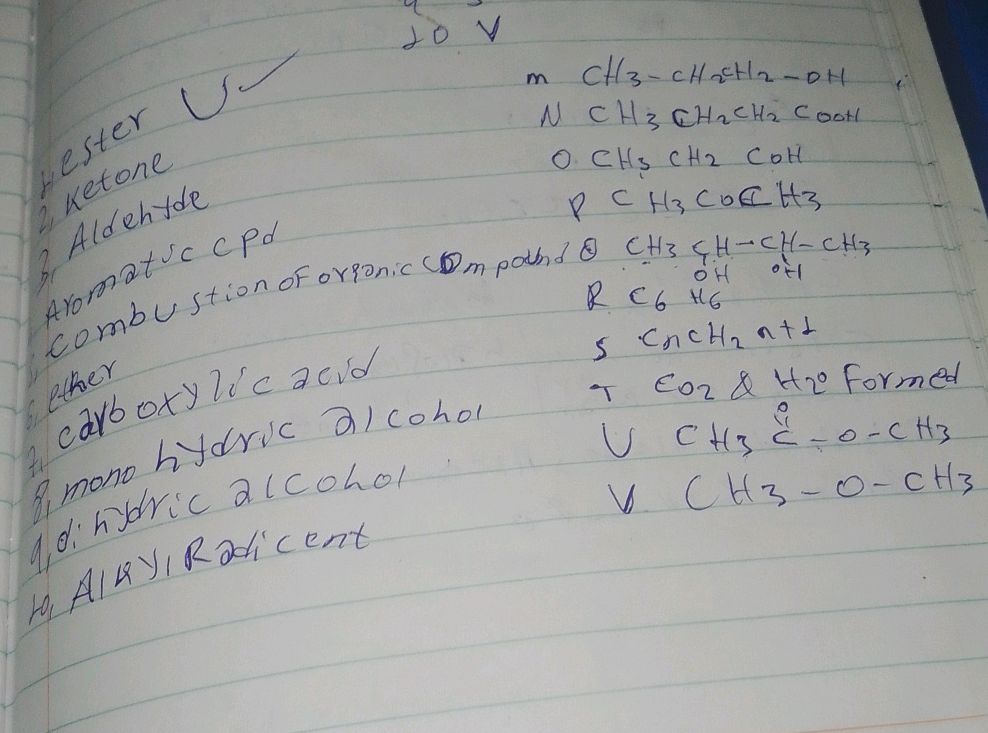 10 V
1, ester U ✓
2, Ketone
3, Aldehyde
Aromatic cpd
combustion of organic compound
6, ether
7, carboxylic acid
8, mono hydric alcohol
9, di hydric alcohol
10, Alkyl Radicent
m CH3-CH2CH2-OH
N CH3 CH2CH2 COOH
O. CH3 CH2 COH
P CH3 COCH3
Q CH3 CH-CH-CH3
OH OH
R C6 H6
S CnCH2n+1
T CO2 & H2O Formed
O
U CH3 C-O-CH3
V CH3-O-CH3